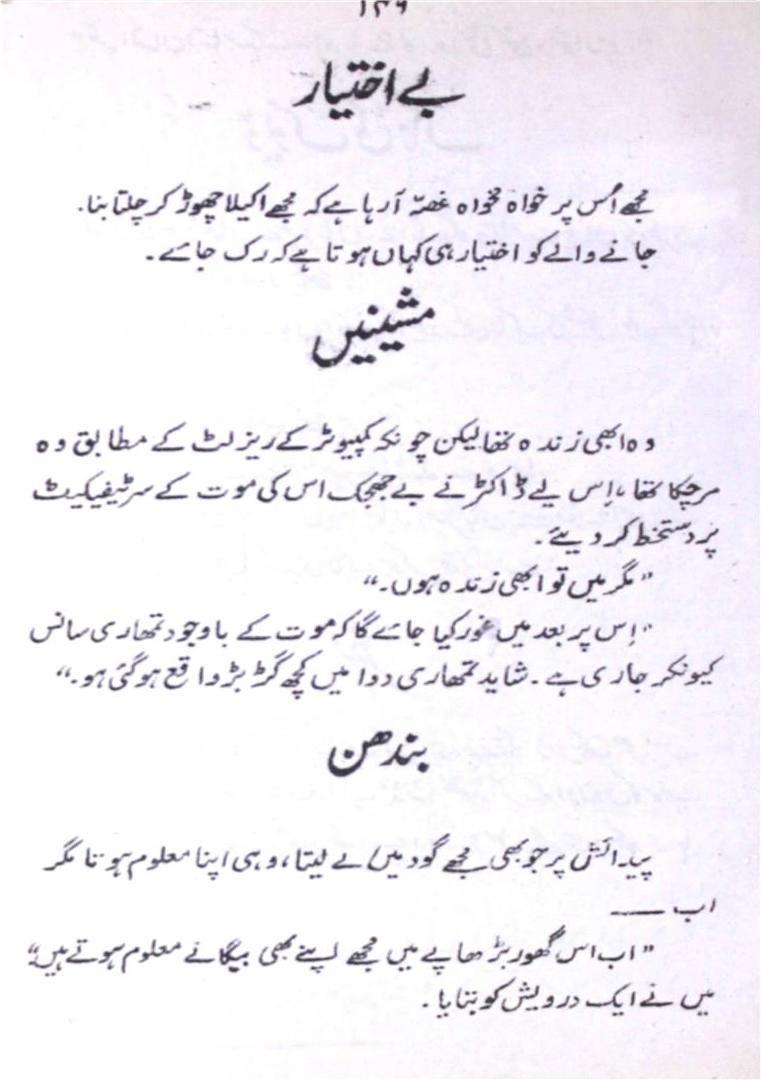 ۱۴۶
بے اختیار
مجھے اُس پر خواہ مخواہ غصّہ آرہا ہے کہ مجھے اکیلا چھوڑ کر چلتا بنا۔
جانے والے کو اختیار ہی کہاں ہوتا ہے کہ رک جائے۔
مشینیں
وہ ابھی زندہ تھا لیکن چونکہ کمپیوٹر کے ریزلٹ کے مطابق وہ
مرچکا تھا، اِس لیے ڈاکٹر نے بے جھجک اس کی موت کے سرٹیفیکیٹ
پر دستخط کر دیئے۔
"مگر میں تو ابھی زندہ ہوں۔"
"اِس پر بعد میں غور کیا جائے گا کہ موت کے باوجود تمھاری سانس
کیونکر جاری ہے۔ شاید تمھاری دوا میں کچھ گڑبڑ واقع ہو گئی ہو۔"
بندھن
پیدائش پر جو بھی مجھے گود میں لے لیتا، وہی اپنا معلوم ہوتا مگر
اب ——
"اب اس گھور بڑھاپے میں مجھے اپنے بھی بیگانے معلوم ہوتے ہیں"
میں نے ایک درویش کو بتایا۔